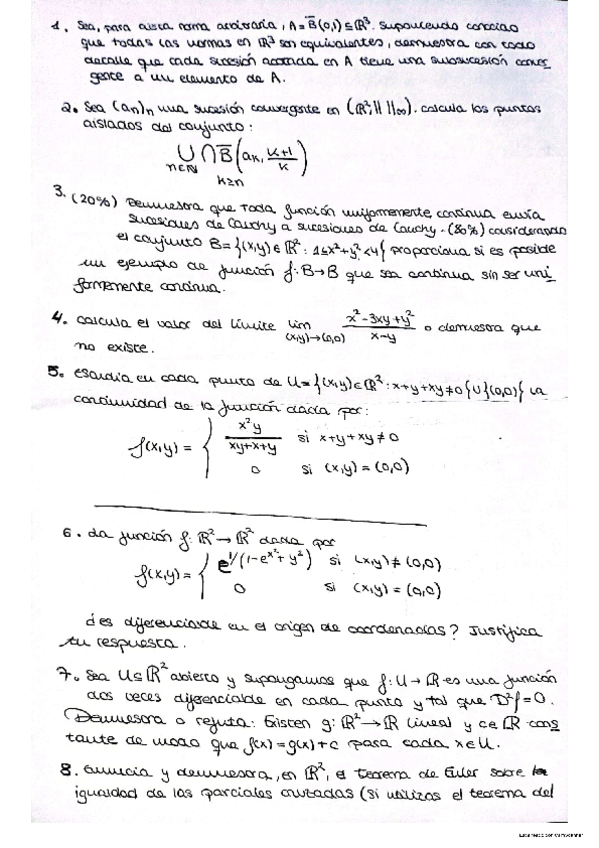 1. Sea, para cierta norma arbitraria, A = B̄(0,1) ⊆ ℝ³. Suponiendo conocido
que todas las normas en ℝ³ son equivalentes, demuestra con todo
detalle que cada sucesión acotada en A tiene una subsucesión conver
gente a un elemento de A.
2. Sea (an)n una sucesión convergente en (ℝ², || ||∞). Calcula los puntos
aislados del conjunto:
⋃ n∈ℕ ⋂ k≥n B̄(ak, (k+1)/k)
3. (20%) Demuestra que toda función uniformemente continua envía
sucesiones de Cauchy a sucesiones de Cauchy. (80%) considerando
el conjunto B = {(x,y) ∈ ℝ² : 1≤x²+y²<4} proporciona si es posible
un ejemplo de función f: B→B que sea continua sin ser uni
formemente continua.
4. Calcula el valor del límite lim (x,y)→(0,0) (x²-3xy+y²)/(x-y) o demuestra que
no existe.
5. Estudia en cada punto de U = {(x,y) ∈ ℝ² : x+y+xy≠0} ∪ {(0,0)} la
continuidad de la función dada por:
f(x,y) = { x²y/(xy+x+y) si x+y+xy ≠ 0
0 si (x,y) = (0,0)
6. La función f: ℝ² → ℝ² dada por
f(x,y) = { e^1/(1-e^x²+y²) si (x,y) ≠ (0,0)
0 si (x,y) = (0,0)
¿es diferenciable en el origen de coordenadas? Justifica
tu respuesta.
7. Sea U⊆ℝ² abierto y supongamos que f: U → ℝ es una función
dos veces diferenciable en cada punto y tal que D²f = 0.
Demuestra o refuta: Existen g: ℝ² → ℝ lineal y c∈ℝ cons
tante de modo que f(x) = g(x) + c para cada x∈U.
8. Enuncia y demuestra, en ℝ², el teorema de Euler sobre la
igualdad de las parciales cruzadas (si utilizas el teorema del